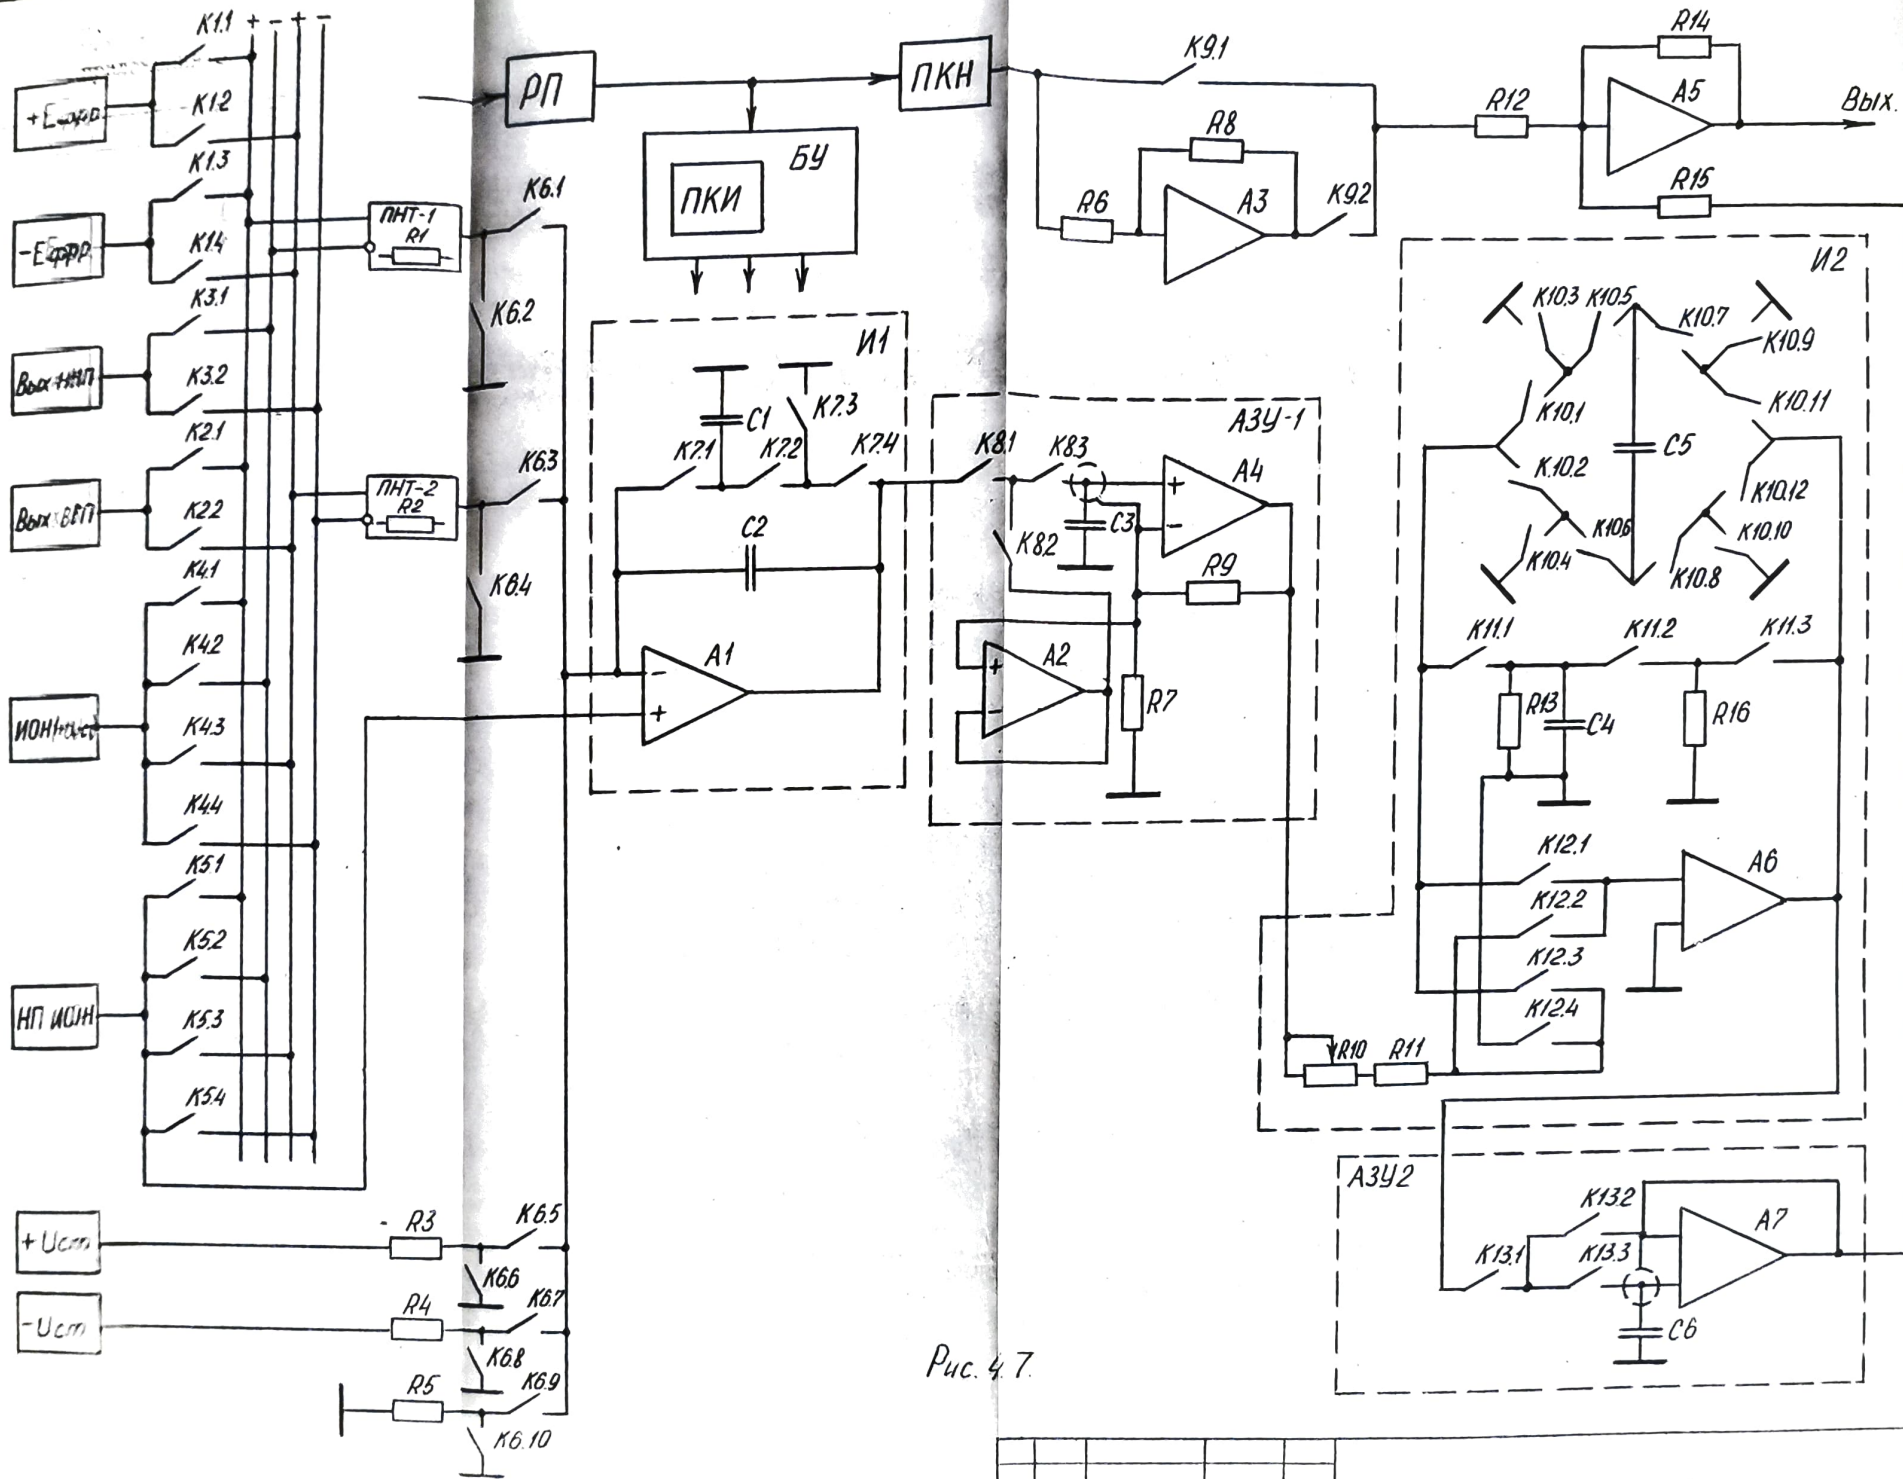 К1.1
+ - + -
+Еэфр
К1.2
К1.3
-Еэфр
К1.4
К3.1
Вых ННП
К3.2
К2.1
Вых ВГП
К2.2
К4.1
К4.2
ИОН
К4.3
К4.4
К5.1
К5.2
НП ИОН
К5.3
К5.4
+Uст
-Uст
ПНТ-1
R1
ПНТ-2
R2
R3
R4
R5
К6.1
К6.2
К6.3
К6.4
К6.5
К6.6
К6.7
К6.8
К6.9
К6.10
РП
ПКН
БУ
ПКИ
И1
С1
К7.3
К7.1
К7.2
К7.4
С2
А1
-
+
АЗУ-1
К8.1
К8.3
К8.2
С3
А4
+
-
R9
А2
+
-
R7
К9.1
R8
R6
А3
К9.2
R12
R14
А5
R15
Вых.
И2
К10.3
К10.5
К10.7
К10.9
К10.1
К10.11
К10.2
С5
К10.12
К10.4
К10.6
К10.8
К10.10
К11.1
К11.2
К11.3
R13
С4
R16
К12.1
К12.2
К12.3
К12.4
А6
R10
R11
АЗУ2
К13.2
К13.1
К13.3
А7
С6
Рис. 4.7.